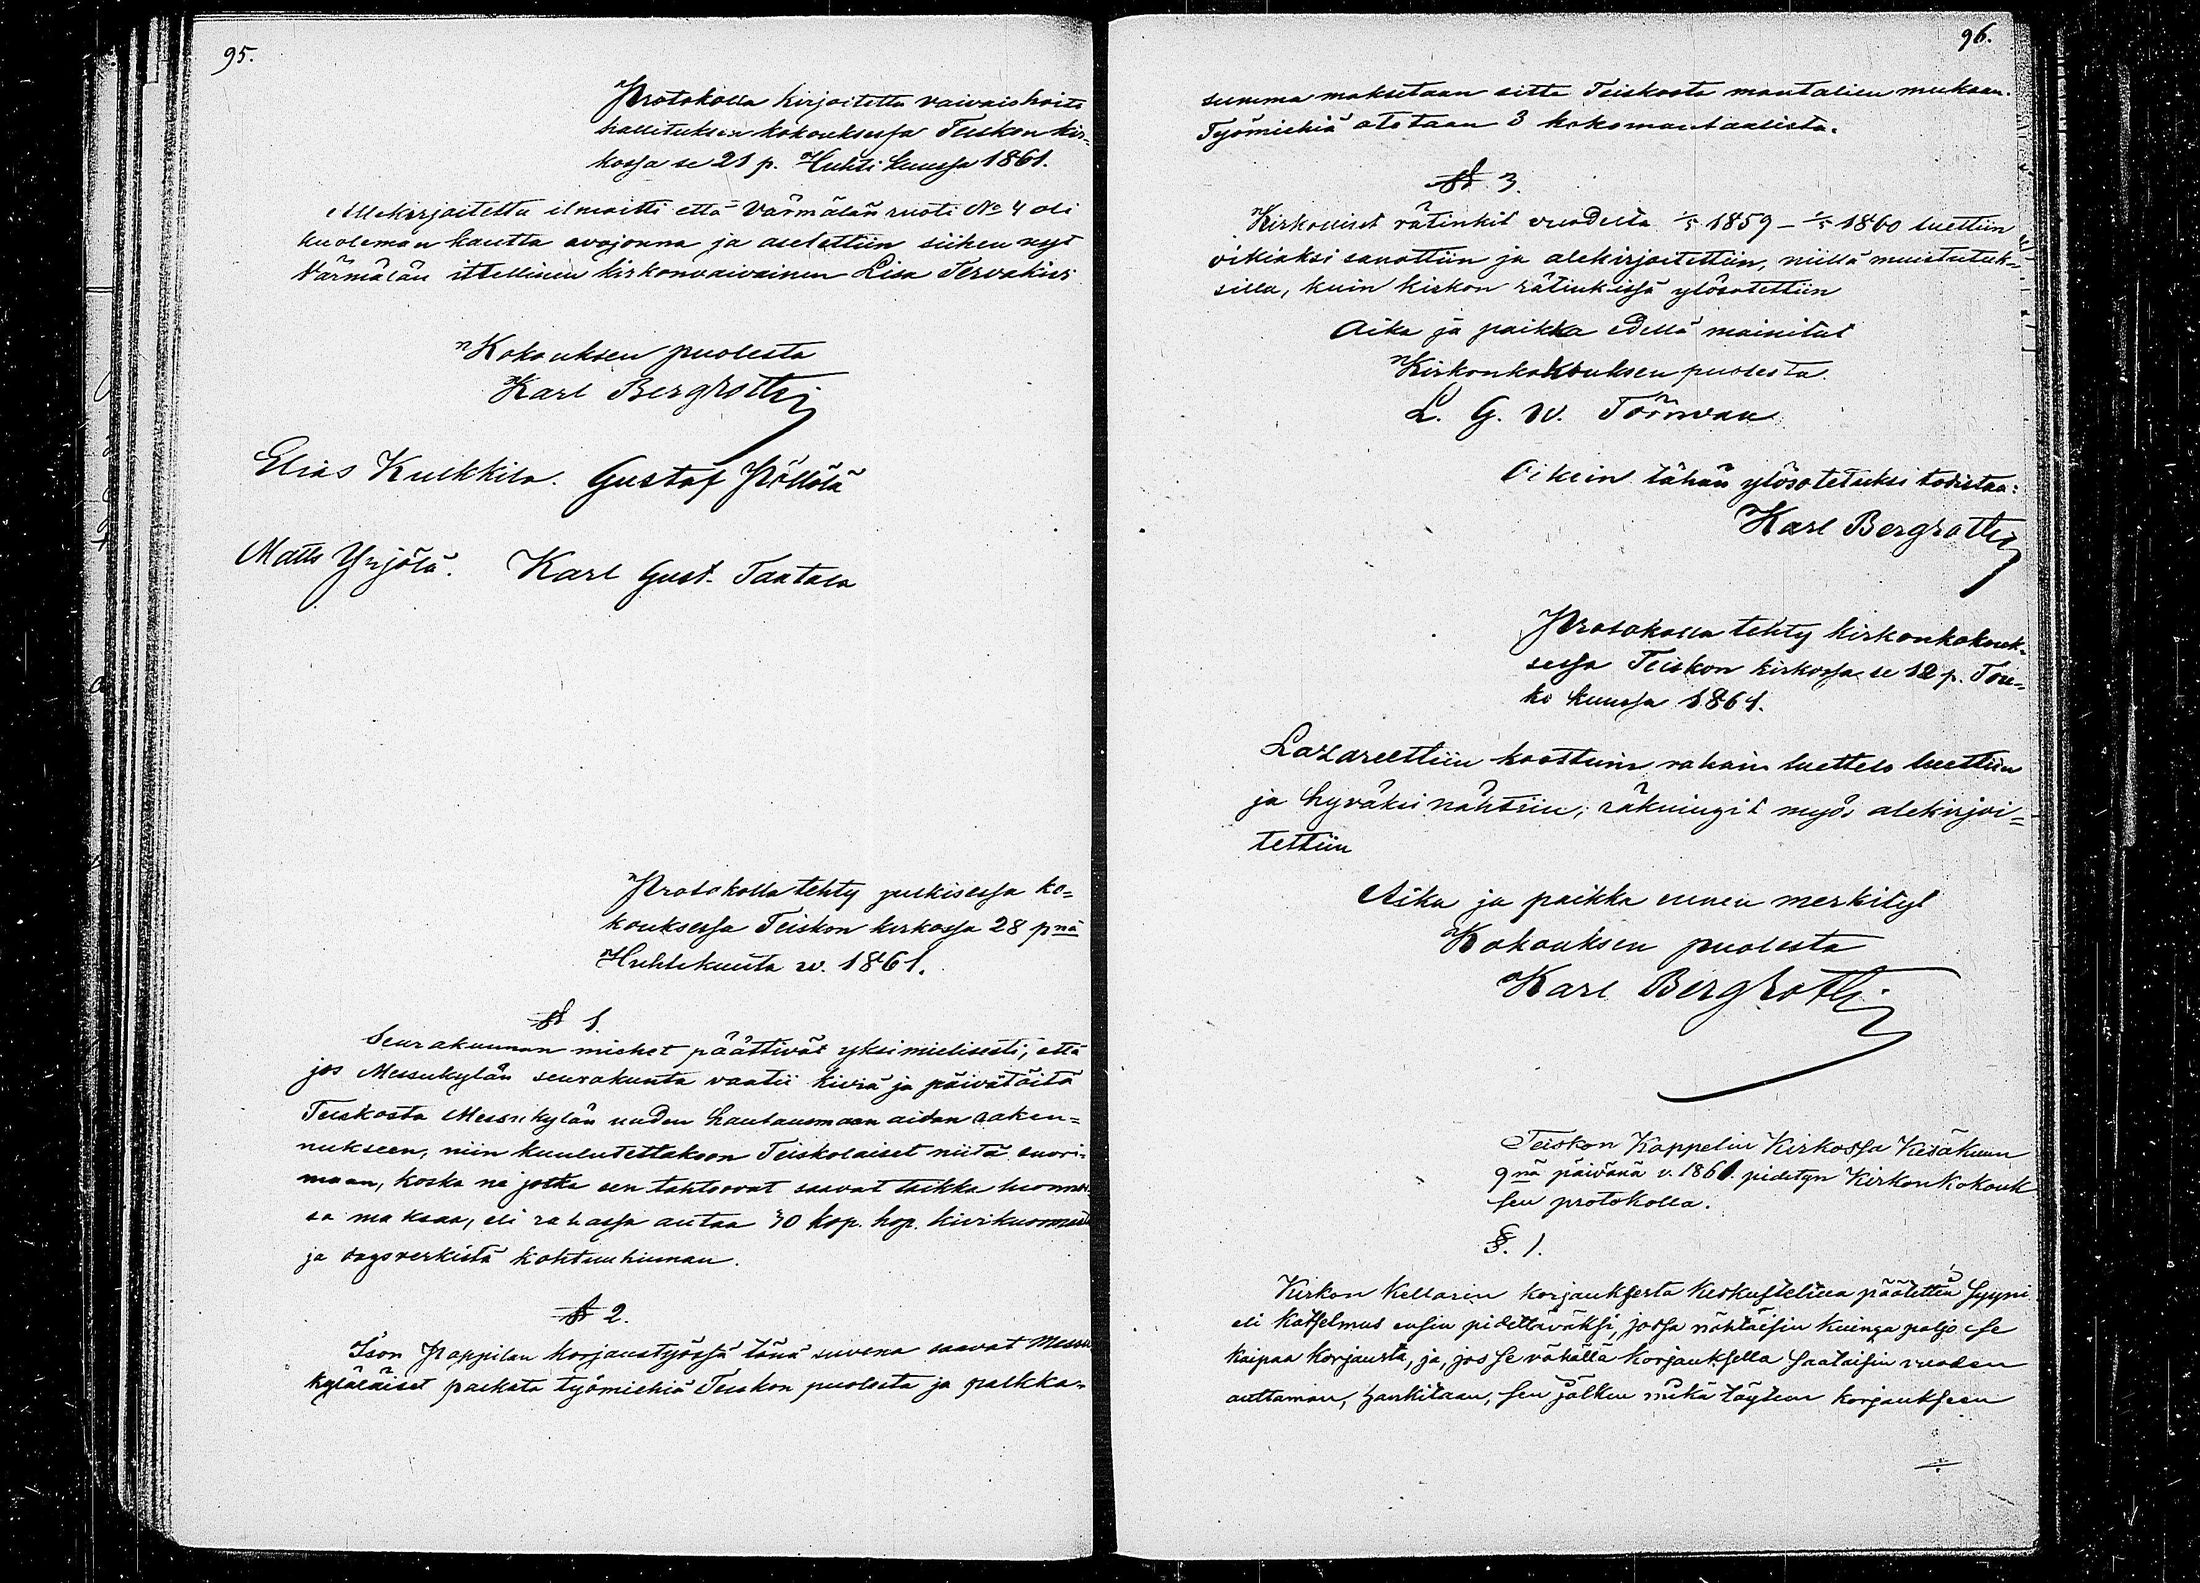 95.
Protokolla kirjoitettu vaivaishoito
hallituksen kokouksessa Teiskon kir=
kossa se 21 p. Huhti kuussa 1861.
Allekirjoitettu ilmoitti että Värmälän ruoti No 4 oli
kuoleman kautta avojonna ja asetettiin siihen nyt
Värmälän ittellinen kirkonvaivainen Lisa Tervakivi
Kokouksen puolesta
Karl Bergroth
Elias Kulkkila. Gustaf Pöllölä
Matts Yrjölä. Karl Gust. Taatala
Protokolla tehty julkisessa ko=
kouksessa Teiskon kirkossa 28 pnä
Huhtikuuta w. 1861.
§ 1.
Seurakunnan miehet päättivät yksimielisesti, että
jos Messukylän seurakunta vaatii kiviä ja päivätöitä
Teiskosta Messukylän uuden hautausmaan aidan raken=
nukseen, niin kuulutettakoon Teiskolaiset niitä suori=
maan, koska ne jotka sen tahtoovat saavat taikka luonnos
sa maksaa, eli rahassa antaa 30 kop. hop. kivikuormasta
ja dagsverkistä kohtuuhinnan.
§ 2.
Ison Pappilan korjaustyössä tänä suvena saavat Messu
kyläläiset palkata työmiehiä Teiskon puolesta ja palkka=
96.
summa maksetaan sitte Teiskosta mantalien mukaan.
Työmiehiä otetaan 3 kokomantaalista.
§ 3.
Kirkolliset rätinkit vuodelta 1/5 1859 - 1/5 1860 luettiin
oikiaksi sanottiin ja alekirjoitettiin, niillä muistutuk=
silla, kuin kirkon rätinkissä ylösotettiin
Aika ja paikka edellä mainitut
Kirkonkokouksen puolesta.
L. G. W. Törnvan
Oikein tähän ylösotetuksi todistaa:
Karl Bergroth
Protokolla tehty kirkonkokouk=
sessa Teiskon kirkossa se 12 p. Tou=
ko kuussa 1861.
Lazareettiin koottuin rahain luettelo luettiin
ja hyväksi nähtiin; räkningit myös alekirjoi=
tettiin
Aika ja paikka ennen merkityt
Kokouksen puolesta
Karl Bergroth
Teiskon Kappelin Kirkossa Kesäkuun
9nä päivänä v. 1861. pidetyn Kirkonkokouk
sen protokolla.
§. 1.
Kirkon Kellarin korjauksesta keskusteltua päätettiin syyni
eli katselmus ensin pidettäväksi, jossa nähtäisiin kuinga paljo se
kaipaa korjausta, ja, jos se vähällä korjauksella saataisiin vuoden
auttamaan, hankitaan, sen jälkeen mikä täyteen korjaukseen